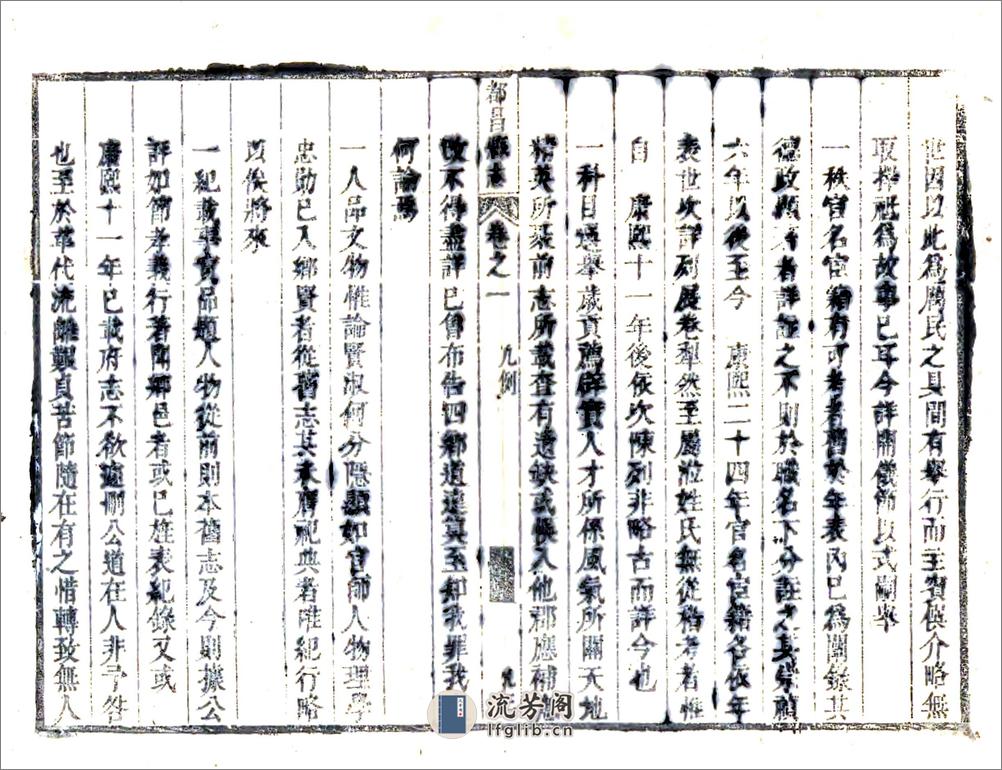 世因以此爲厲民之具間有舉行而主賓僎介略無
取擇祇爲故事已耳今詳開儀節以式嗣舉
一秩官名宦籍有可考者舊於年表內已爲闡錄其
德政顯著者詳註之不則於職名下分註之其崇禎
六年以後至今 康熙二十四年官名宦籍各依年
表世次詳列展卷犁然至屬泒姓氏無從稽考者惟
自 康熙十一年後依次陳列非略古而詳今也
一科目選舉歲貢薦辟實人才所係風氣所關天地
精英所聚前志所載查有遺缺或悞入他郡應補
改不得盡詳已曾布告四鄉道遠莫至知我罪我
何論焉
一人品文物惟論賢淑何分隱顯如官師人物理學
忠勳已入鄉賢者從舊志其未膺祀典者唯紀行略
以俟將來
一紀載事實品題人物從前則本舊志及今則據公
評如節孝義行著聞鄉邑者或已旌表紀錄又或
康熙十一年已載府志不欲遽刪公道在人非予咎
也至於革代流離艱貞苦節隨在有之惜轉致無人
都昌縣志 卷之一 凡例
流芳阁
lfglib.cn